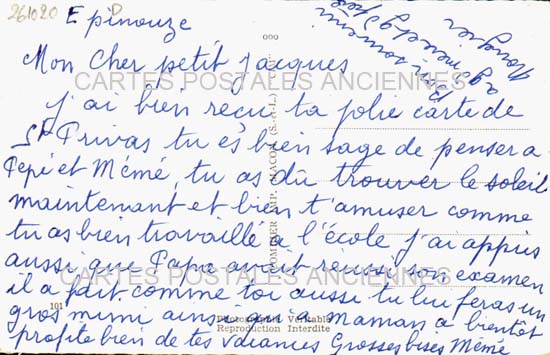 261020
Epinouze
Mon Cher petit Jacques
j'ai bien reçu ta jolie carte de
St Privas tu és bien sage de penser a
Pepé et Mémé, tu as dû trouver le soleil
maintenant et bien t'amuser comme
tu as bien travaillé a l'école j'ai appris
aussi que Papa avait réussi son examen
il a fait comme toi aussi tu lui feras un
gros mimi ainsi qu'a maman a bientôt
profite bien de tes vacances Grosses bises Mémé
CARTES POSTALES ANCIENNES
CARTES POSTALES ANCIENNES
COMBIER IMP. MACON (S.-et-L.)
101
Photographie Véritable
Reproduction Interdite